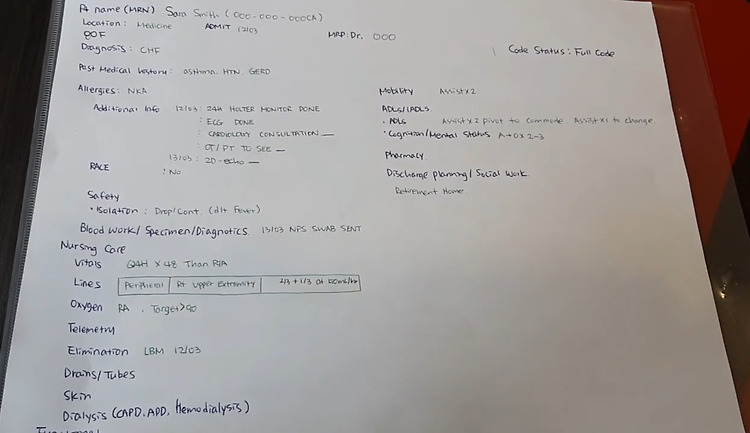 Pt name (MRN) Sara Smith (000-000-000CA)
Location: Medicine ADMIT 12/03 MRP: Dr. 000
Code Status: Full Code
Diagnosis: CHF
Past Medical history: asthma. HTN. GERD
Allergies: NKA
Additional Info 12/03: 24H HOLTER MONITOR DONE
: ECG DONE
: CARDIOLOGY CONSULTATION —
: OT/PT TO SEE —
13/03: 2D-echo —
: No
Safety
• Isolation: Drop/Cont. (d/t Fever)
Mobility Assist x 2
ADLs/IADLs.
• ADLs Assist x 2 pivot to commode. Assist x 1 to change.
• Cognition/Mental Status A+OX 2-3
Pharmacy
Discharge planning/Social Work.
Retirement Home.
Blood Work/Specimen/Diagnotics. 13/03 NPS SWAB SENT
Nursing Care
Vitals Q4H X 48 Than
Lines Peripheral Rt Upper Extremity 2/3 + 1/3 at
Oxygen RA. Target>90
Telemetry
Elimination LBM 12/03
Drains/Tubes
Skin
Dialysis (CAPD, APD, Hemodialysis)